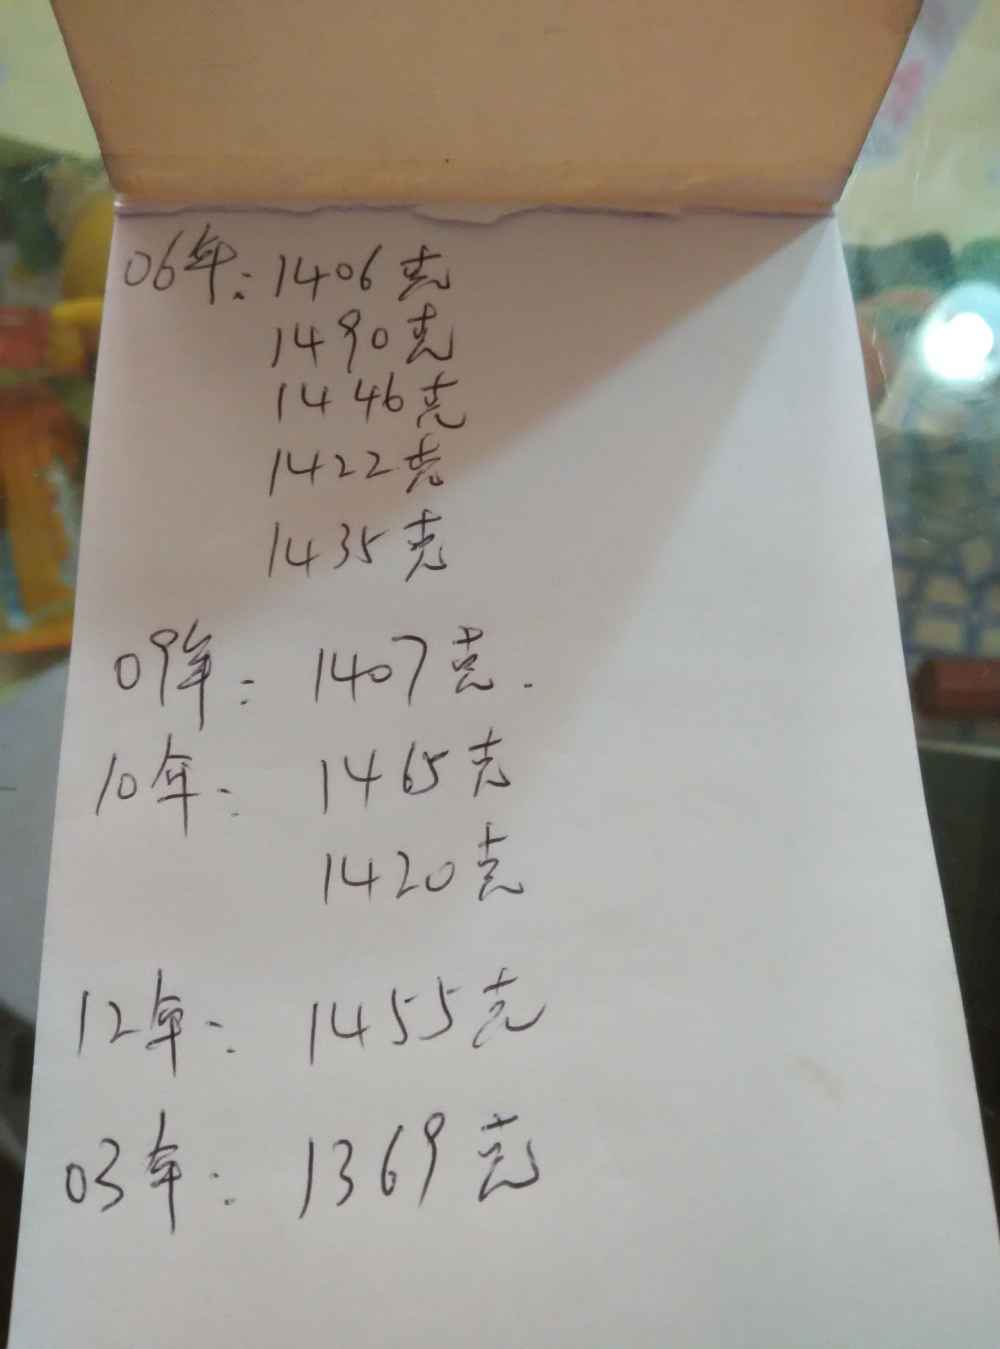 06年: 1406克
1490克
1446克
1422克
1435克
09年: 1407克.
10年: 1465克
1420克
12年: 1455克
03年: 1369克